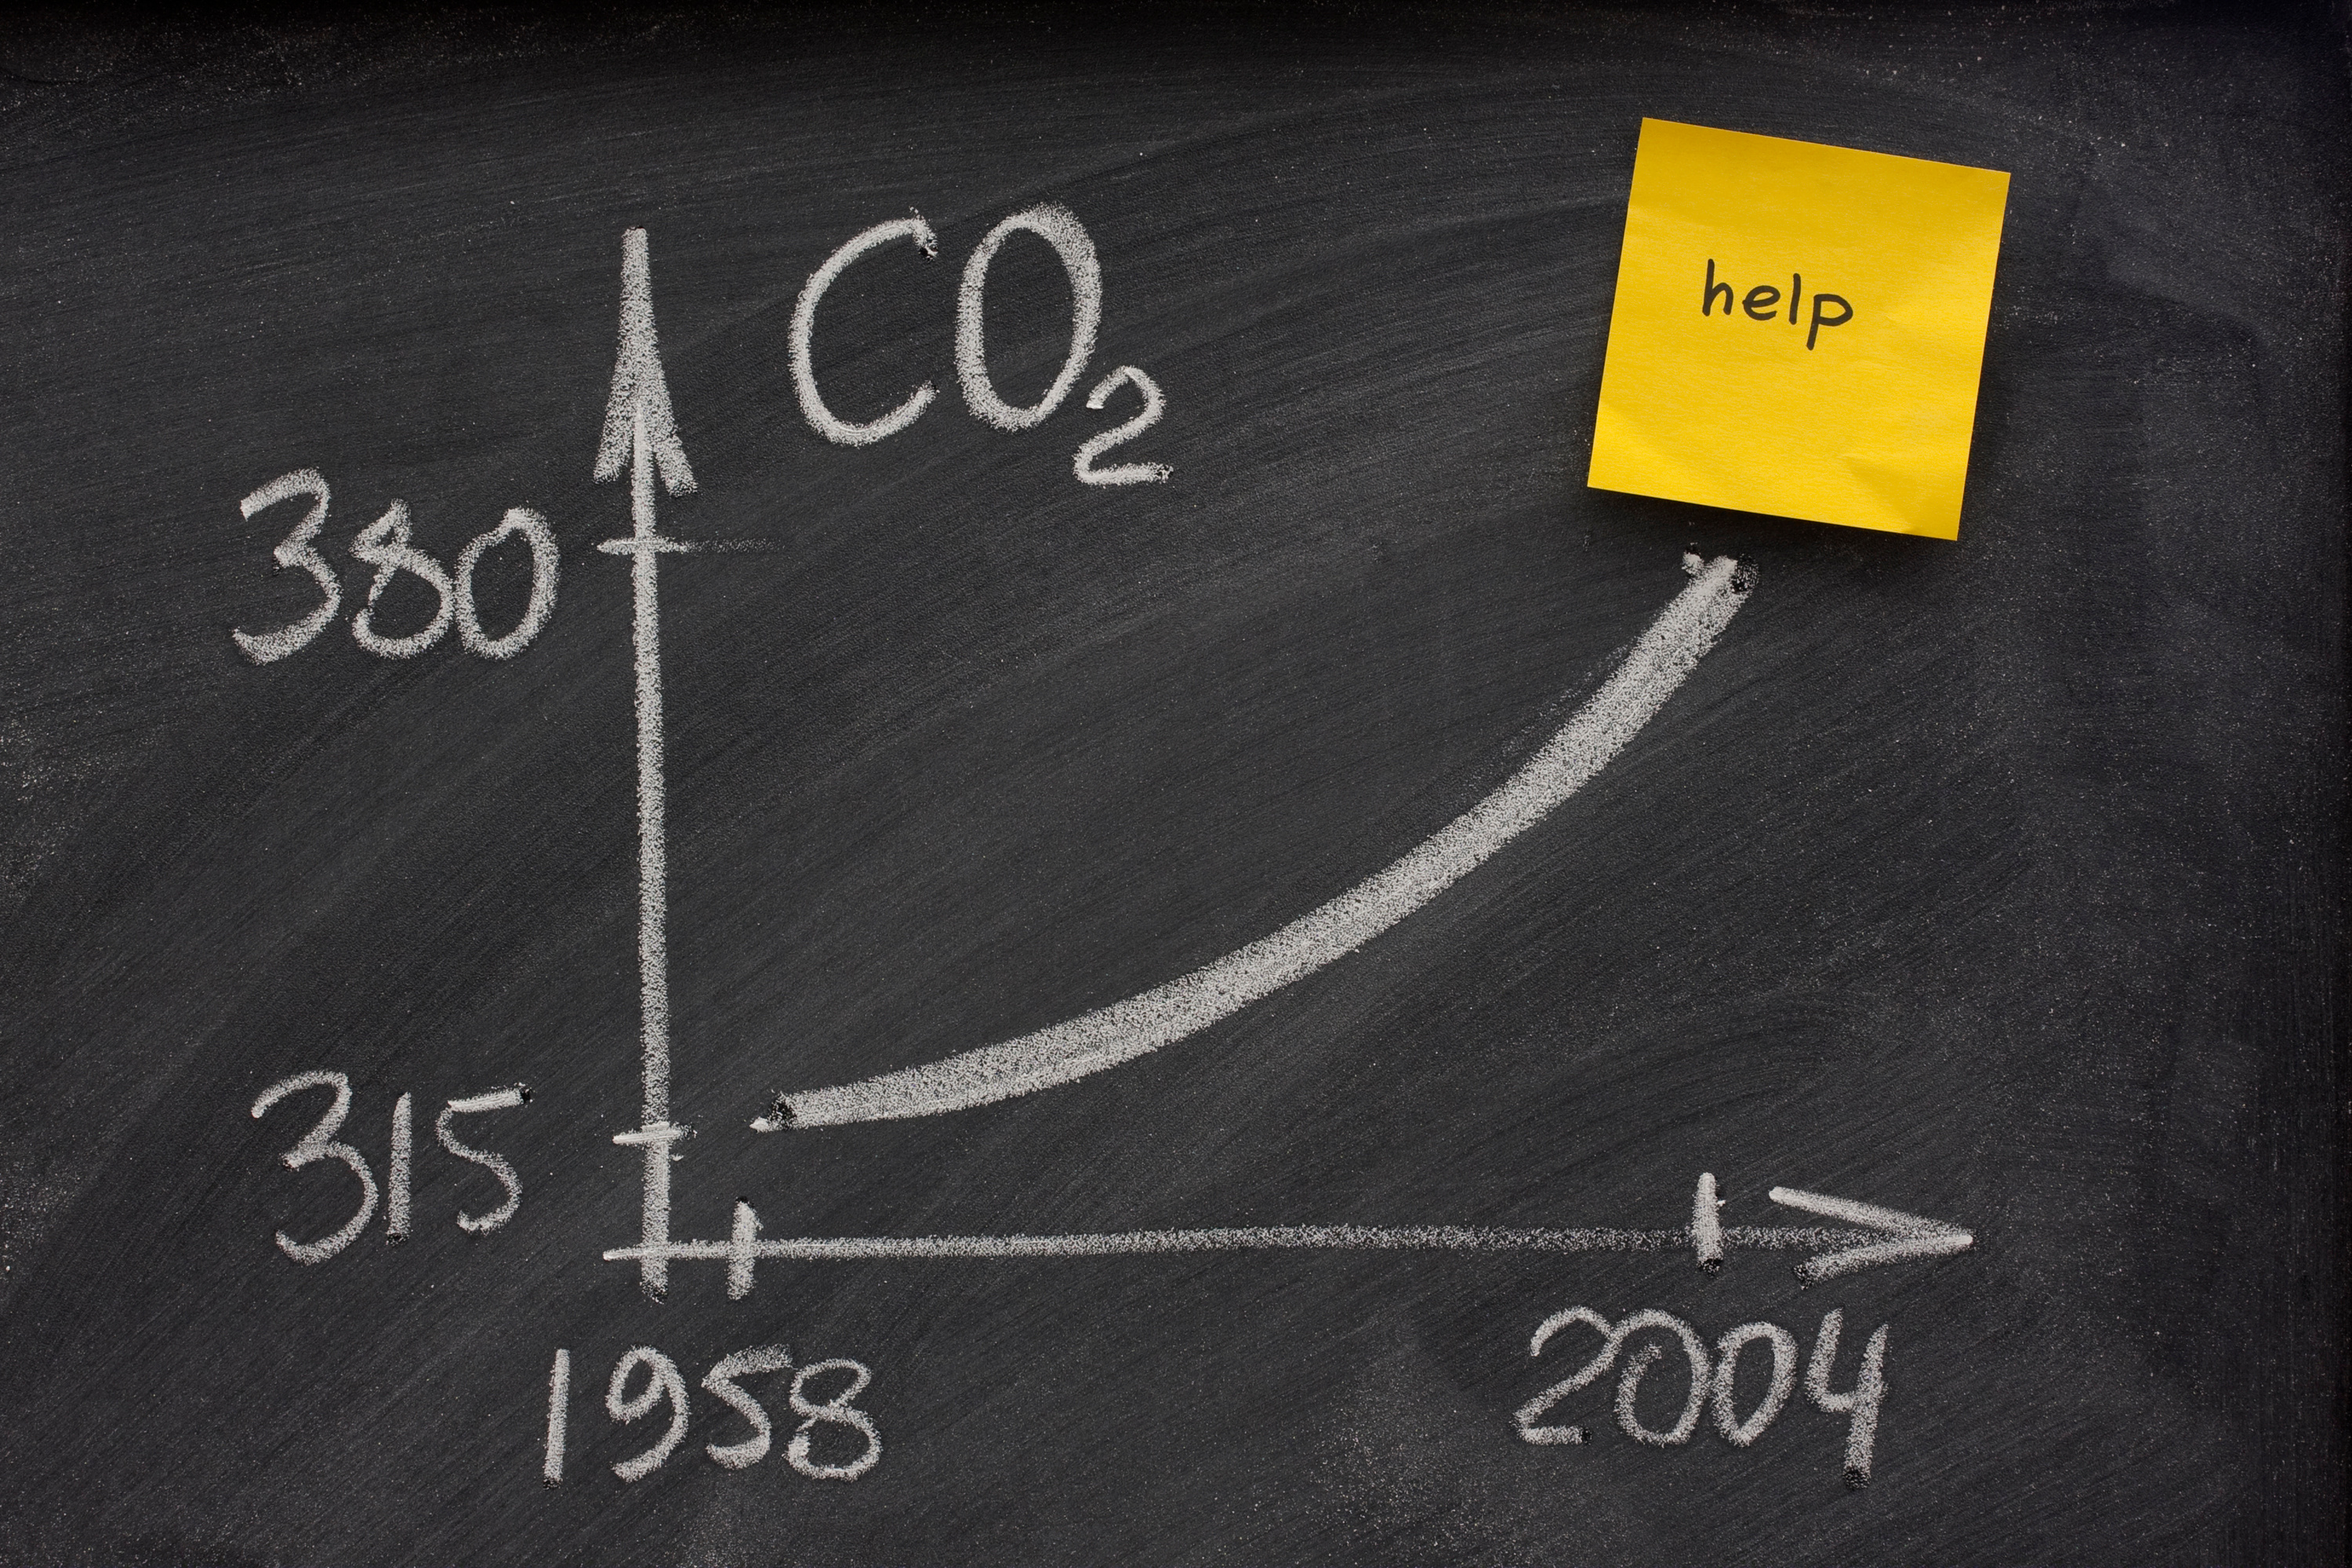 CO₂
help
380
315
1958
2004